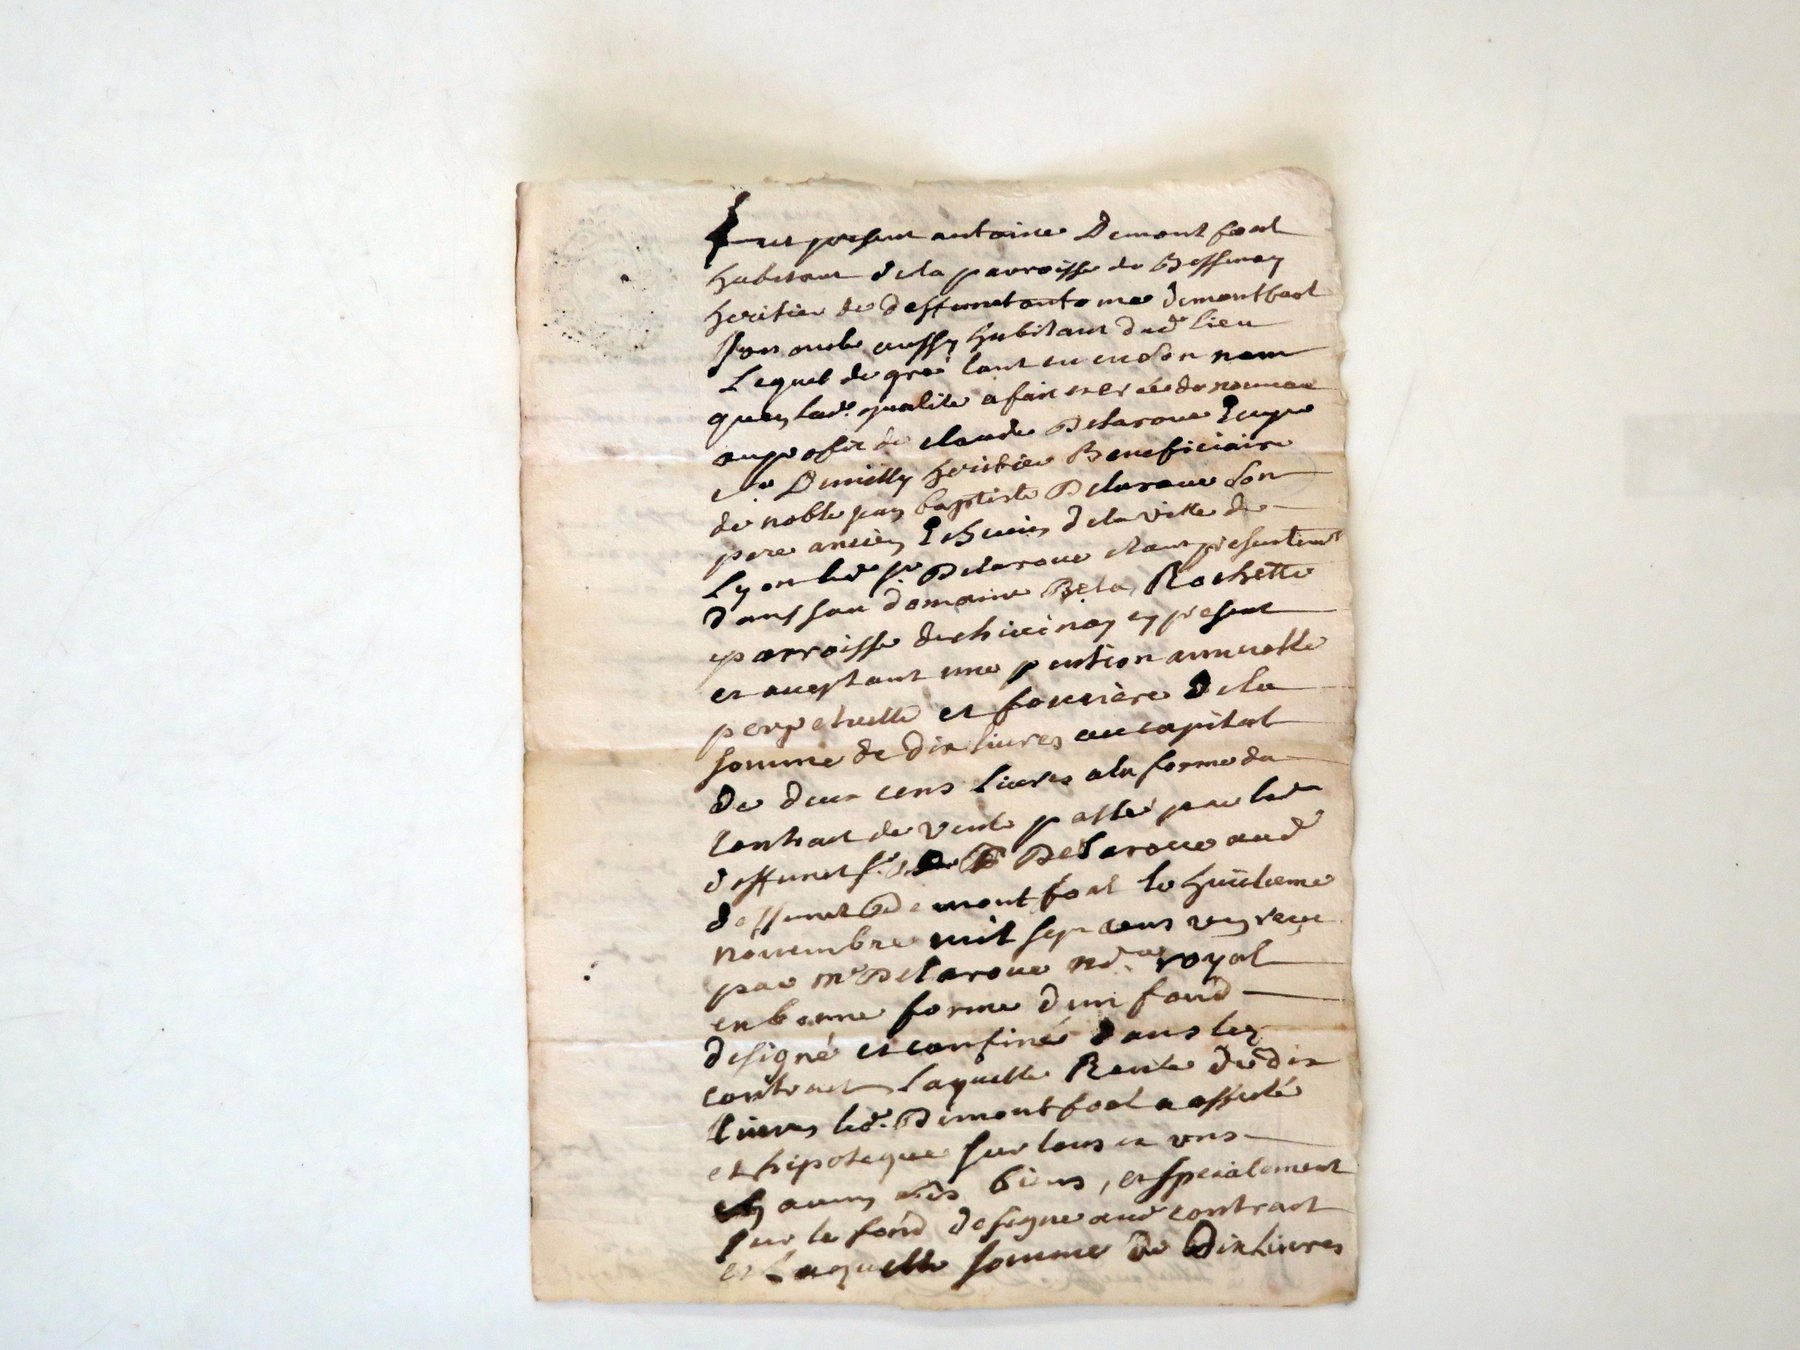 Fut present antoine Demontfort
habitant de la parroisse de Bessenay
heritier de deffunct antoine demontfort
son oncle aussy habitant dud. lieu
Lequel de gré tant en en son nom
quen lad. qualité a fait et créé de nouveau
au profit de claude Delaroue Ecuyer
Sr. Demilly heritier Beneficiaire
de noble jean baptiste Delaroue son
pere ancien Echevin de la ville de
Lyon led. sr. Delaroue etant presentement
dans son domaine De la Rochette
parroisse de chevinay cy present
et acceptant une pention annuelle
perpetuelle et fonciere de la
somme de dix livres au capital
de deux cens livres a la forme du
contract de vente passé par led.
deffunct sr. Delaroue aud.
deffunct Demontfort le huitieme
novembre mil sept cens receu
par me Delaroue nore royal
en bonne forme dun fond
designé et confiné dans led.
contract Laquelle Rente de dix
livres led. Demontfort a affecté
et hipotequé sur tous et uns
chacuns ses biens, et specialement
sur le fond designé aud. contract
et Laquelle somme de Dix Livres